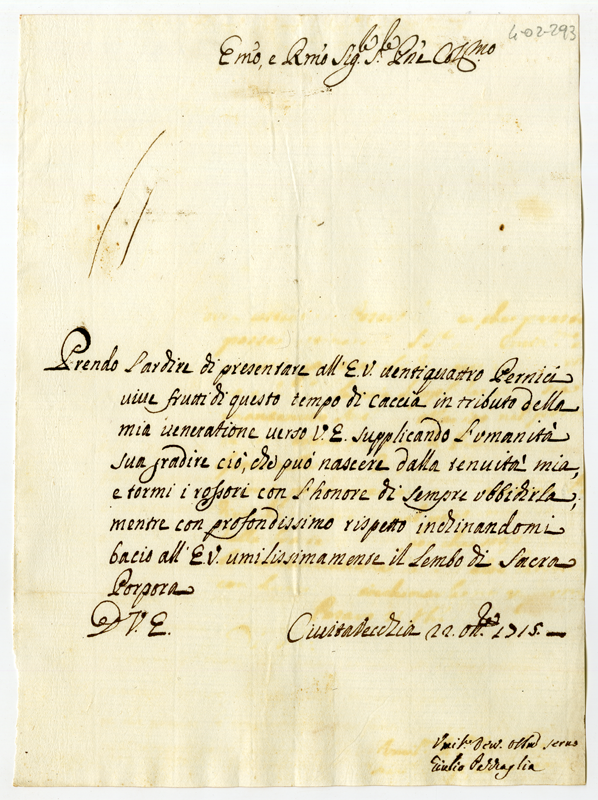 4-02-293
Em̃o, e Rm̃o Sig.re S.re Pñe Col.mo
Prendo l'ardire di presentare all'E.V. uentiquattro Pernici
uiue frutti di questo tempo di caccia in tributo della
mia ueneratione uerso V.E. supplicando l'umanità
sua gradire ciò, che può nascere dalla tenuità mia,
e tormi i rossori con l'honore di sempre ubbidirla;
mentre con profondissimo rispetto inchinandomi
bacio all'E.V. umilissimamente il lembo di Sacra
Porpora
D V.E. Ciuitauecchia 22. ott.re 1715.
Umil.o Deu. obb.o seruo
Giulio